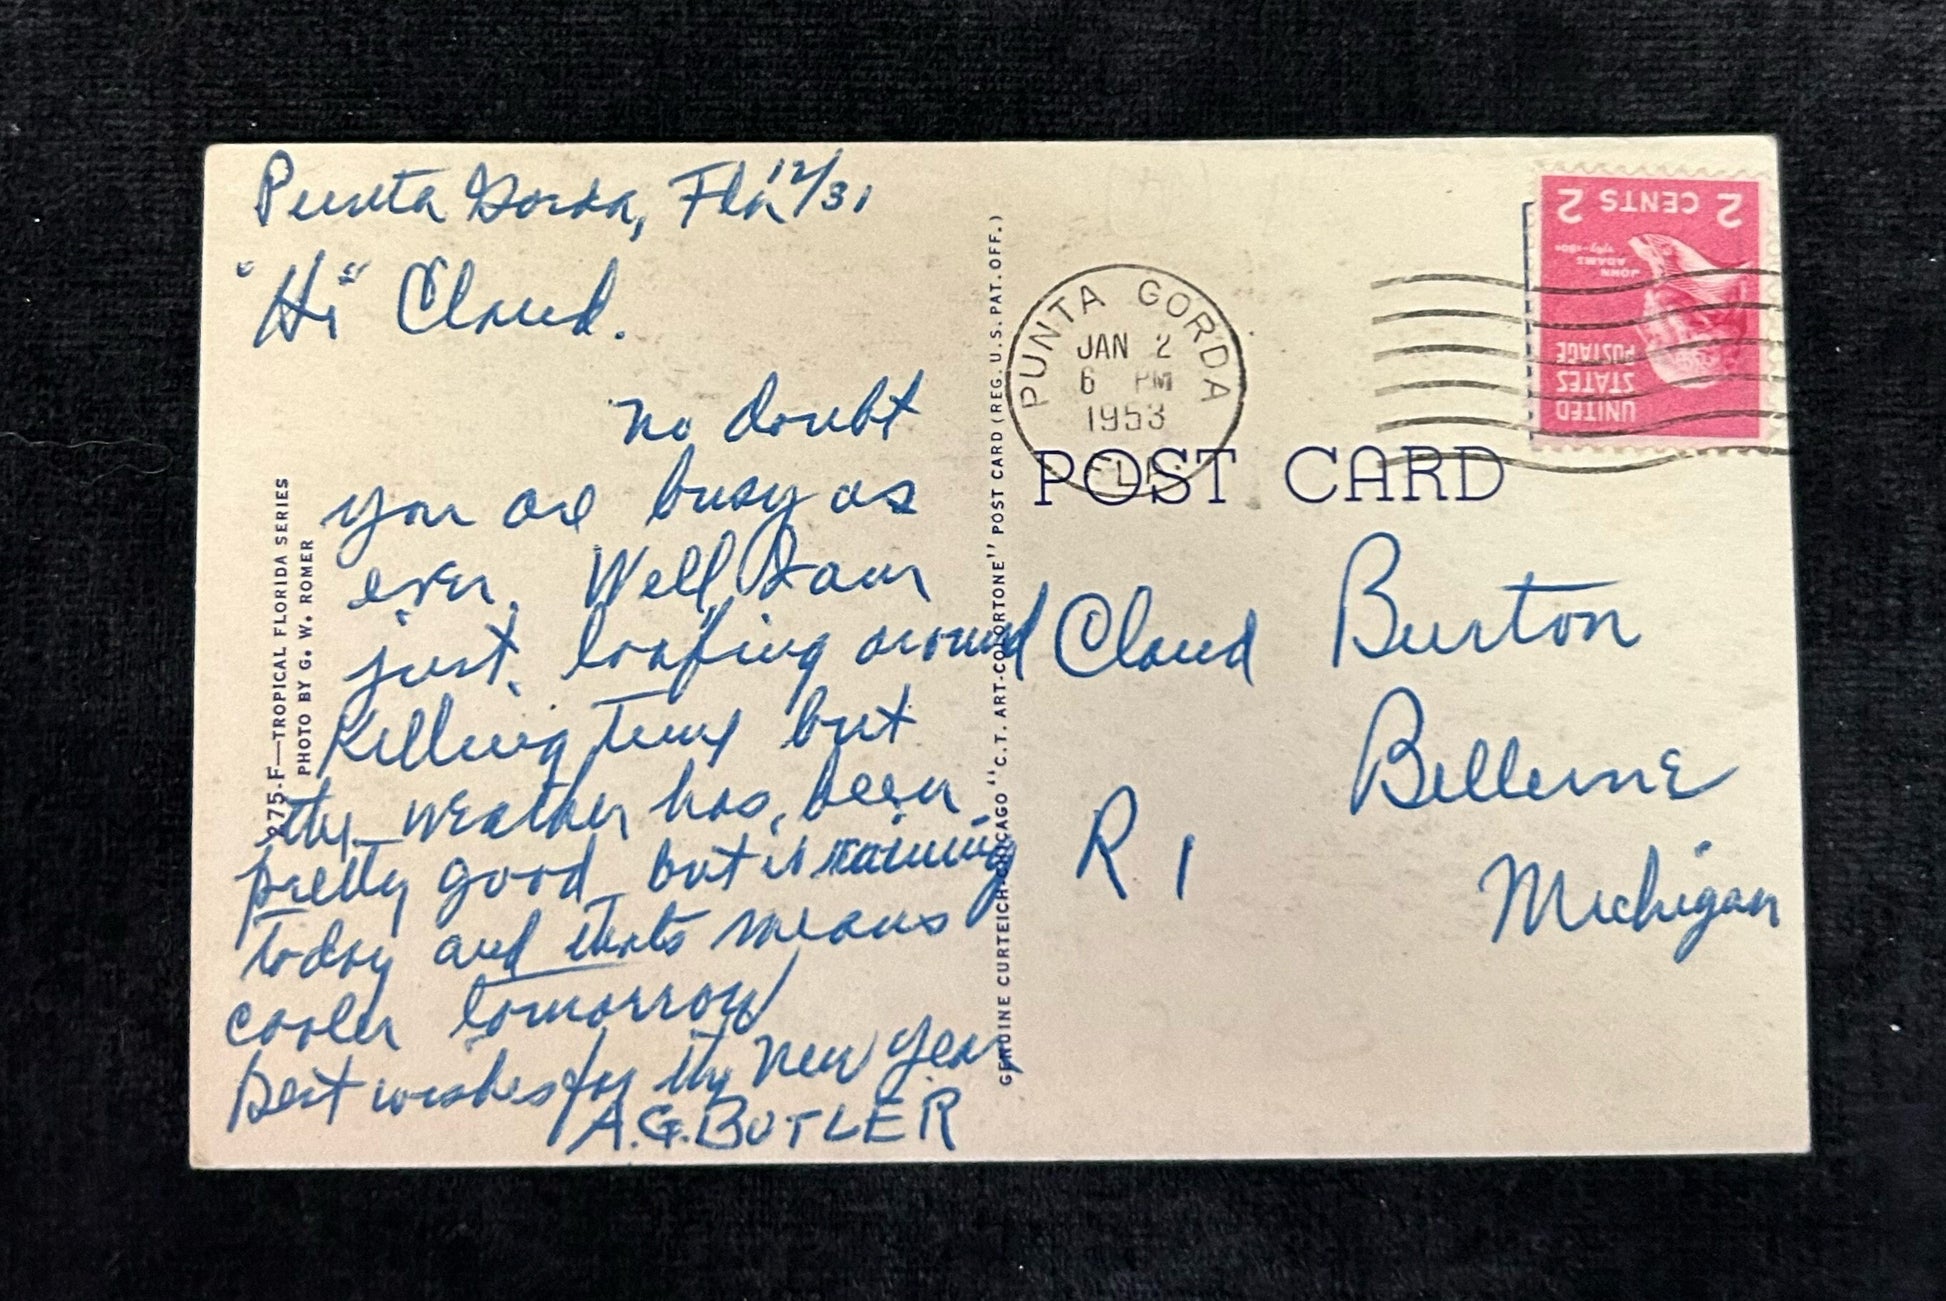 Punta Gorda, Fla 12/31
"Hi" Claud.
No doubt
you are busy as
ever. Well I am
just loafing around
Killing time but
the weather has been
pretty good but is raining
today and thats means
cooler tomorrow
Best wishes for the New Year
A.G. BUTLER
275-F—TROPICAL FLORIDA SERIES
PHOTO BY G. W. ROMER
GENUINE CURTEICH-CHICAGO "C.T. ART-COLORTONE" POST CARD (REG. U.S. PAT. OFF.)
PUNTA GORDA
JAN 2
6 PM
1953
FLA.
2 CENTS 2
JOHN
ADAMS
1797-1801
UNITED
STATES
POSTAGE
POST CARD
Claud Burton
Bellevue
R 1
Michigan